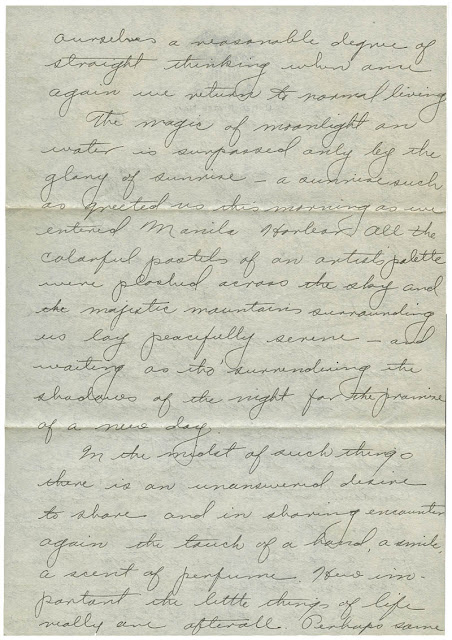 ourselves a reasonable degree of
straight thinking when once
again we return to normal living
The magic of moonlight on
water is surpassed only by the
glory of sunrise — a sunrise such
as greeted us this morning as we
entered Manila Harbor. All the
colorful pastels of an artist's palette
were plashed across the sky and
the majestic mountains surrounding
us lay peacefully serene — and
waiting as tho' surrendering the
shadows of the night for the promise
of a new day.
In the midst of such things
there is an unanswered desire
to share and in sharing encounter
again the touch of a hand, a smile,
a scent of perfume. How im-
portant the little things of life
really are afterall. Perhaps some